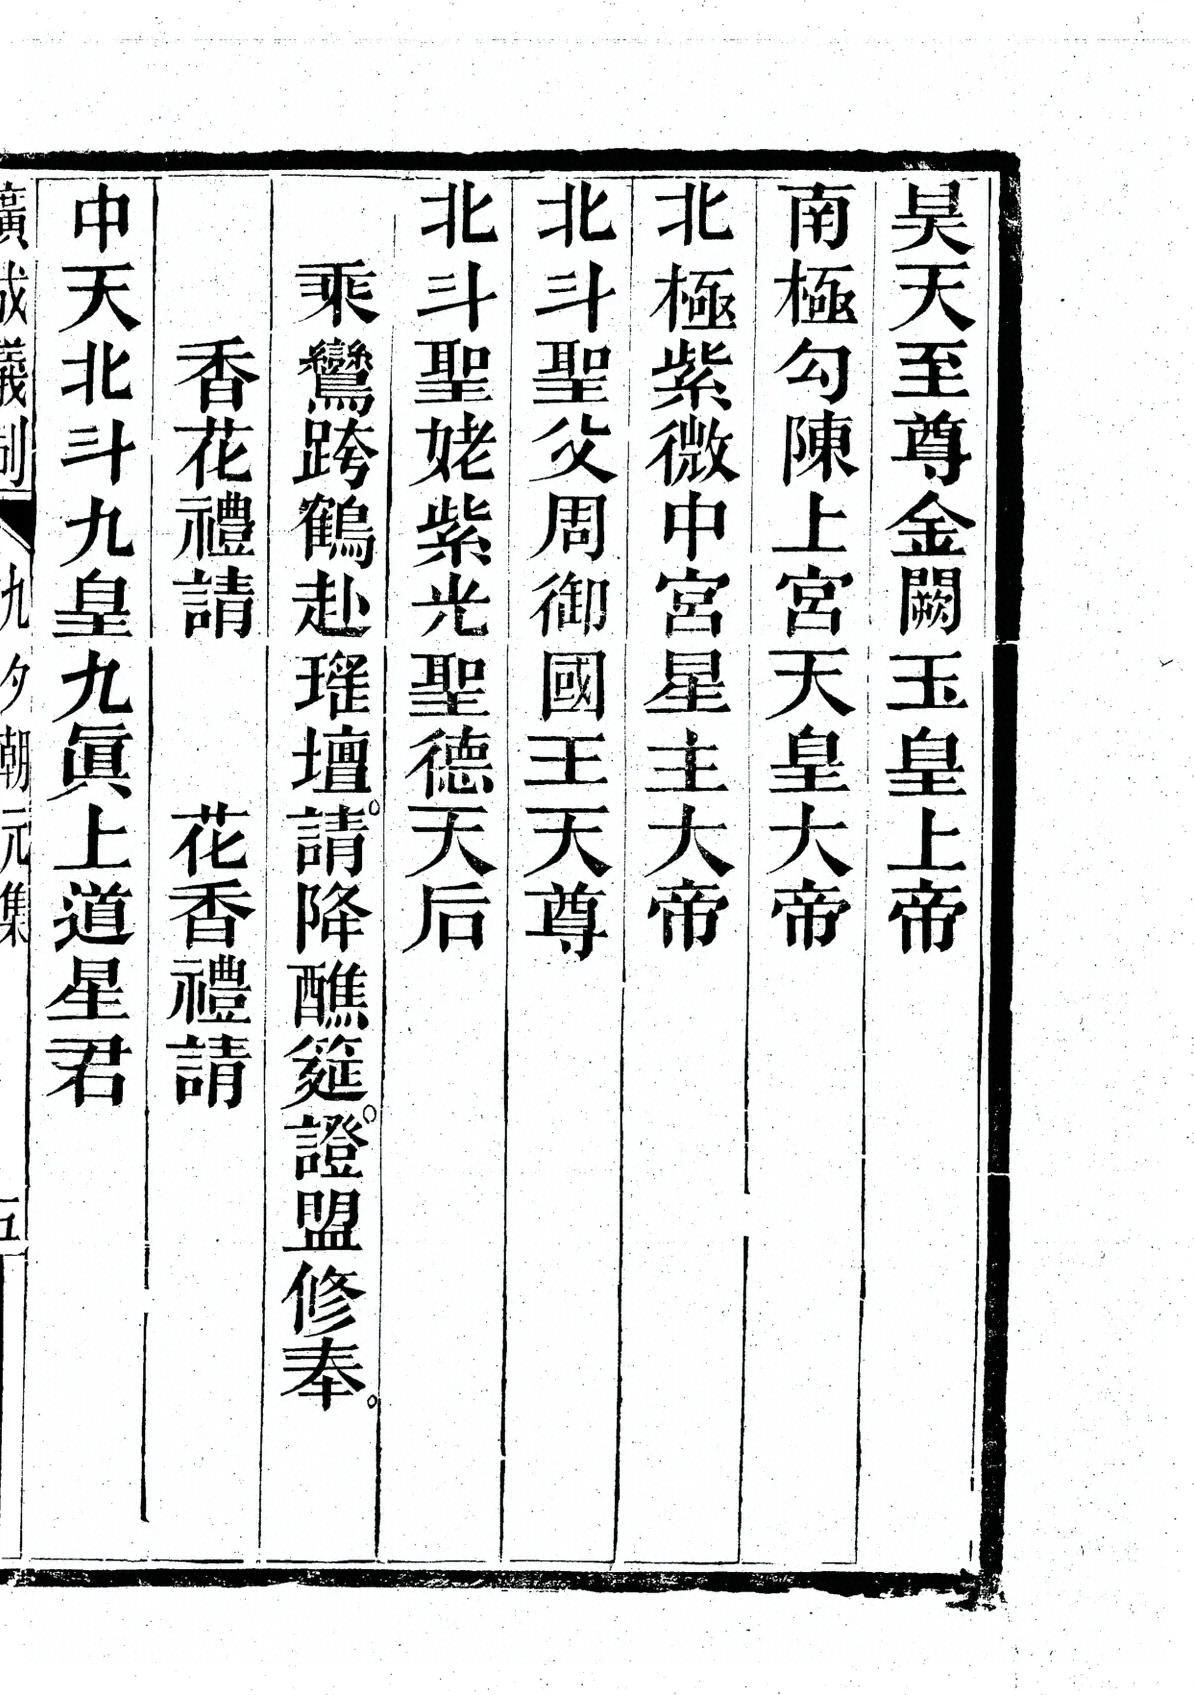 昊天至尊金闕玉皇上帝
南極勾陳上宮天皇大帝
北極紫微中宮星主大帝
北斗聖父周御國王天尊
北斗聖姥紫光聖德天后
乘鸞跨鶴赴瑤壇請。降醮筵證。盟修奉。
香花禮請　花香禮請
中天北斗九皇九眞上道星君
廣成儀制　九夕朝元集　五